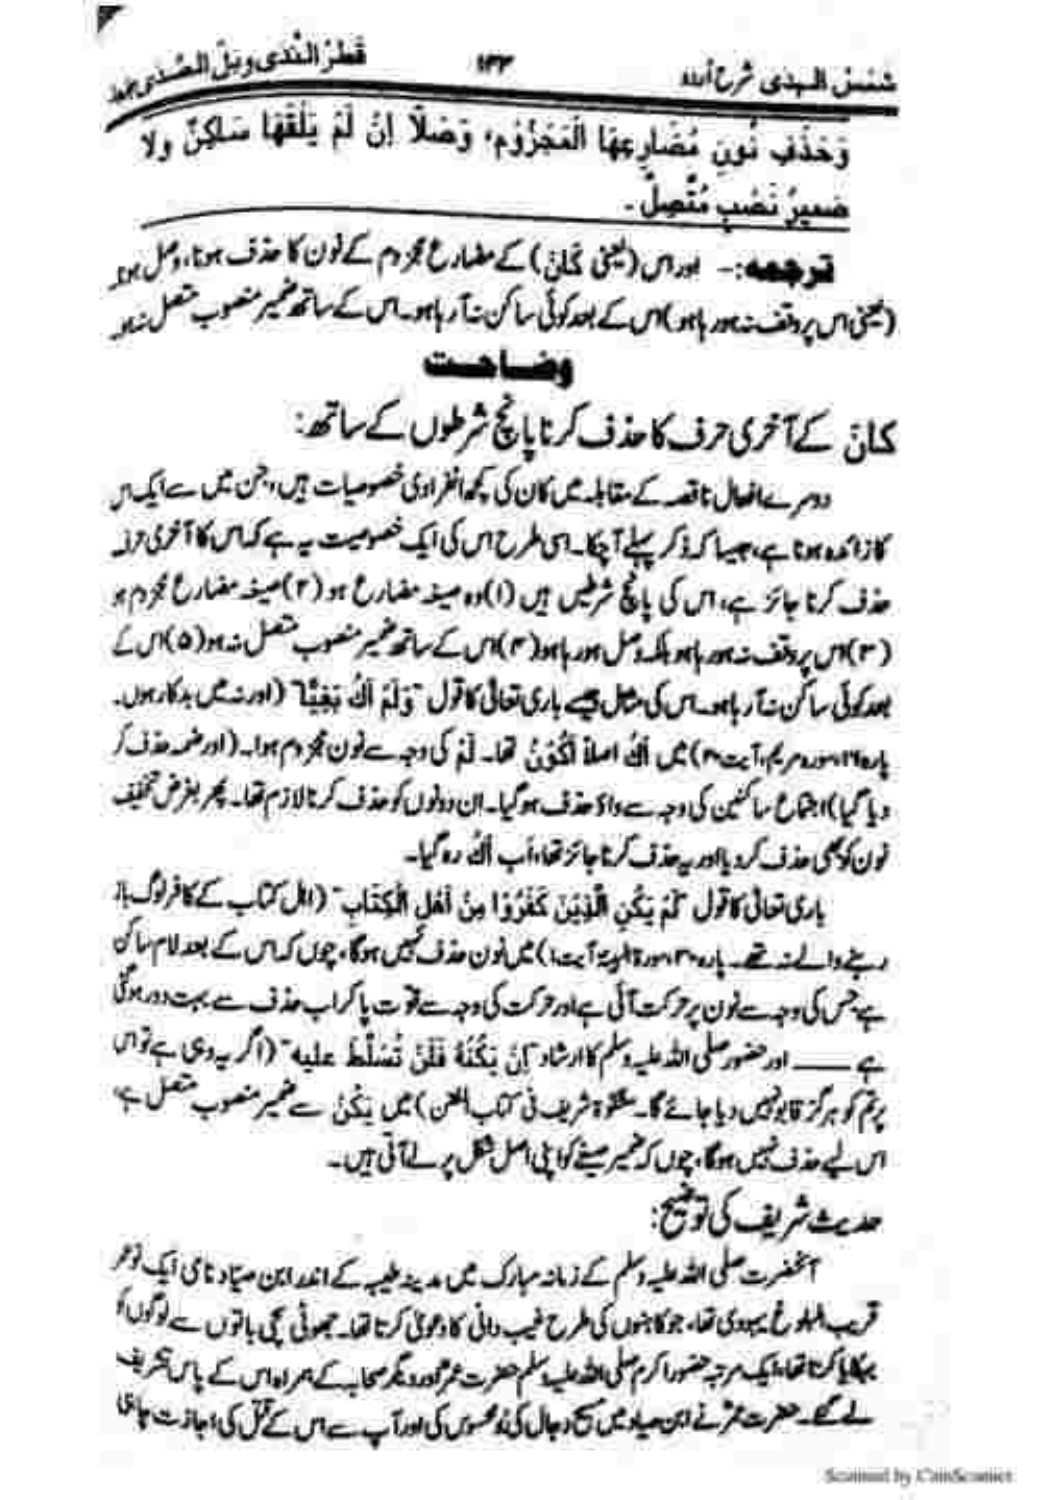 شمس الهدى شرح اُردو ۱۳۳ قَطرُ النَّدى وبَلّ الصَّدى
وَحَذْفِ نُونِ مُضَارِعِهَا الْمَجْزُوْمِ، وَصْلًا اِنْ لَمْ يَلْقَهَا سَاكِنٌ ولا
ضميرُ نَصْبٍ مُتَّصِلٌ ۔
ترجمہ:- اور اس (یعنی کَانَ) کے مضارع مجزوم کے نون کا حذف ہونا، وصل ہو
(یعنی اس پر وقف نہ ہو رہا ہو) اس کے بعد کوئی ساکن نہ آ رہا ہو۔ اس کے ساتھ ضمیر منصوب متصل نہ ہو
وضاحت
کانَ کے آخری حرف کا حذف کرنا پانچ شرطوں کے ساتھ:
دوسرے افعال ناقصہ کے مقابلہ میں کان کی کچھ انفرادی خصوصیات ہیں، جن میں سے ایک اس
کا زائدہ ہونا ہے، جیسا کہ ذکر پہلے آچکا۔ اسی طرح اس کی ایک خصوصیت یہ ہے کہ اس کا آخری حرف
حذف کرنا جائز ہے، اس کی پانچ شرطیں ہیں (۱) وہ صیغہ مضارع ہو (۲) صیغہ مضارع مجزوم ہو
(۳) اس پر وقف نہ ہو رہا ہو بلکہ وصل ہو رہا ہو (۴) اس کے ساتھ ضمیر منصوب متصل نہ ہو (۵) اس کے
بعد کوئی ساکن نہ آ رہا ہو۔ اس کی مثال جیسے باری تعالیٰ کا قول "وَلَمْ اَكُ بَغِيًّا" (اور نہ میں بدکار ہوں۔
پارہ ۱۶، سورہ مریم، آیت ۲۰) میں اَكُ اصلًا اَكُوْنُ تھا۔ لَمْ کی وجہ سے نون مجزوم ہوا۔ (اور ضمہ حذف کر
دیا گیا) اجتماع ساکنین کی وجہ سے واؤ حذف ہو گیا۔ ان دونوں کو حذف کرنا لازم تھا۔ پھر بغرض تخفیف
نون کو بھی حذف کر دیا اور یہ حذف کرنا جائز تھا، اَب اَكُ رہ گیا۔
باری تعالیٰ کا قول "لَمْ يَكُنِ الَّذِيْنَ كَفَرُوْا مِنْ اَهْلِ الْكِتَابِ" (اہل کتاب کے کافر لوگ باز
رہنے والے نہ تھے۔ پارہ ۳۰، سورۃ البینۃ آیت ۱) میں نون حذف نہیں ہوگا، چوں کہ اس کے بعد لام ساکن
ہے جس کی وجہ سے نون پر حرکت آئی ہے اور حرکت کی وجہ سے قوت پا کر اب حذف سے بہت دور ہوگئی
ہے ــــــ اور حضور صلی اللہ علیہ وسلم کا ارشاد "اِنْ يَكُنْهُ فَلَنْ تُسَلَّطَ عليه" (اگر یہ وہی ہے تو اس
پر تم کو ہرگز قابو نہیں دیا جائے گا۔ مشکوٰۃ شریف فی کتاب الفتن) میں يَكُنْ سے ضمیر منصوب متصل ہے،
اس لیے حذف نہیں ہوگا، چوں کہ ضمیر صیغے کو اپنی اصل شکل پر لے آتی ہیں۔
حدیث شریف کی توضیح:
آنحضرت صلی اللہ علیہ وسلم کے زمانہ مبارک میں مدینہ طیبہ کے اندر ابن صیّاد نامی ایک نوعمر
قریب البلوغ یہودی تھا، جو کاہنوں کی طرح غیب دانی کا دعویٰ کرتا تھا۔ جھوٹی سچی باتوں سے لوگوں کو
بہکایا کرتا تھا، ایک مرتبہ حضور اکرم صلی اللہ علیہ وسلم حضرت عمرؓ اور دیگر صحابہ کے ہمراہ اس کے پاس تشریف
لے گئے۔ حضرت عمرؓ نے ابن صیاد میں مسیح دجال کی بُو محسوس کی اور آپ سے اس کے قتل کی اجازت چاہی
Scanned by CamScanner